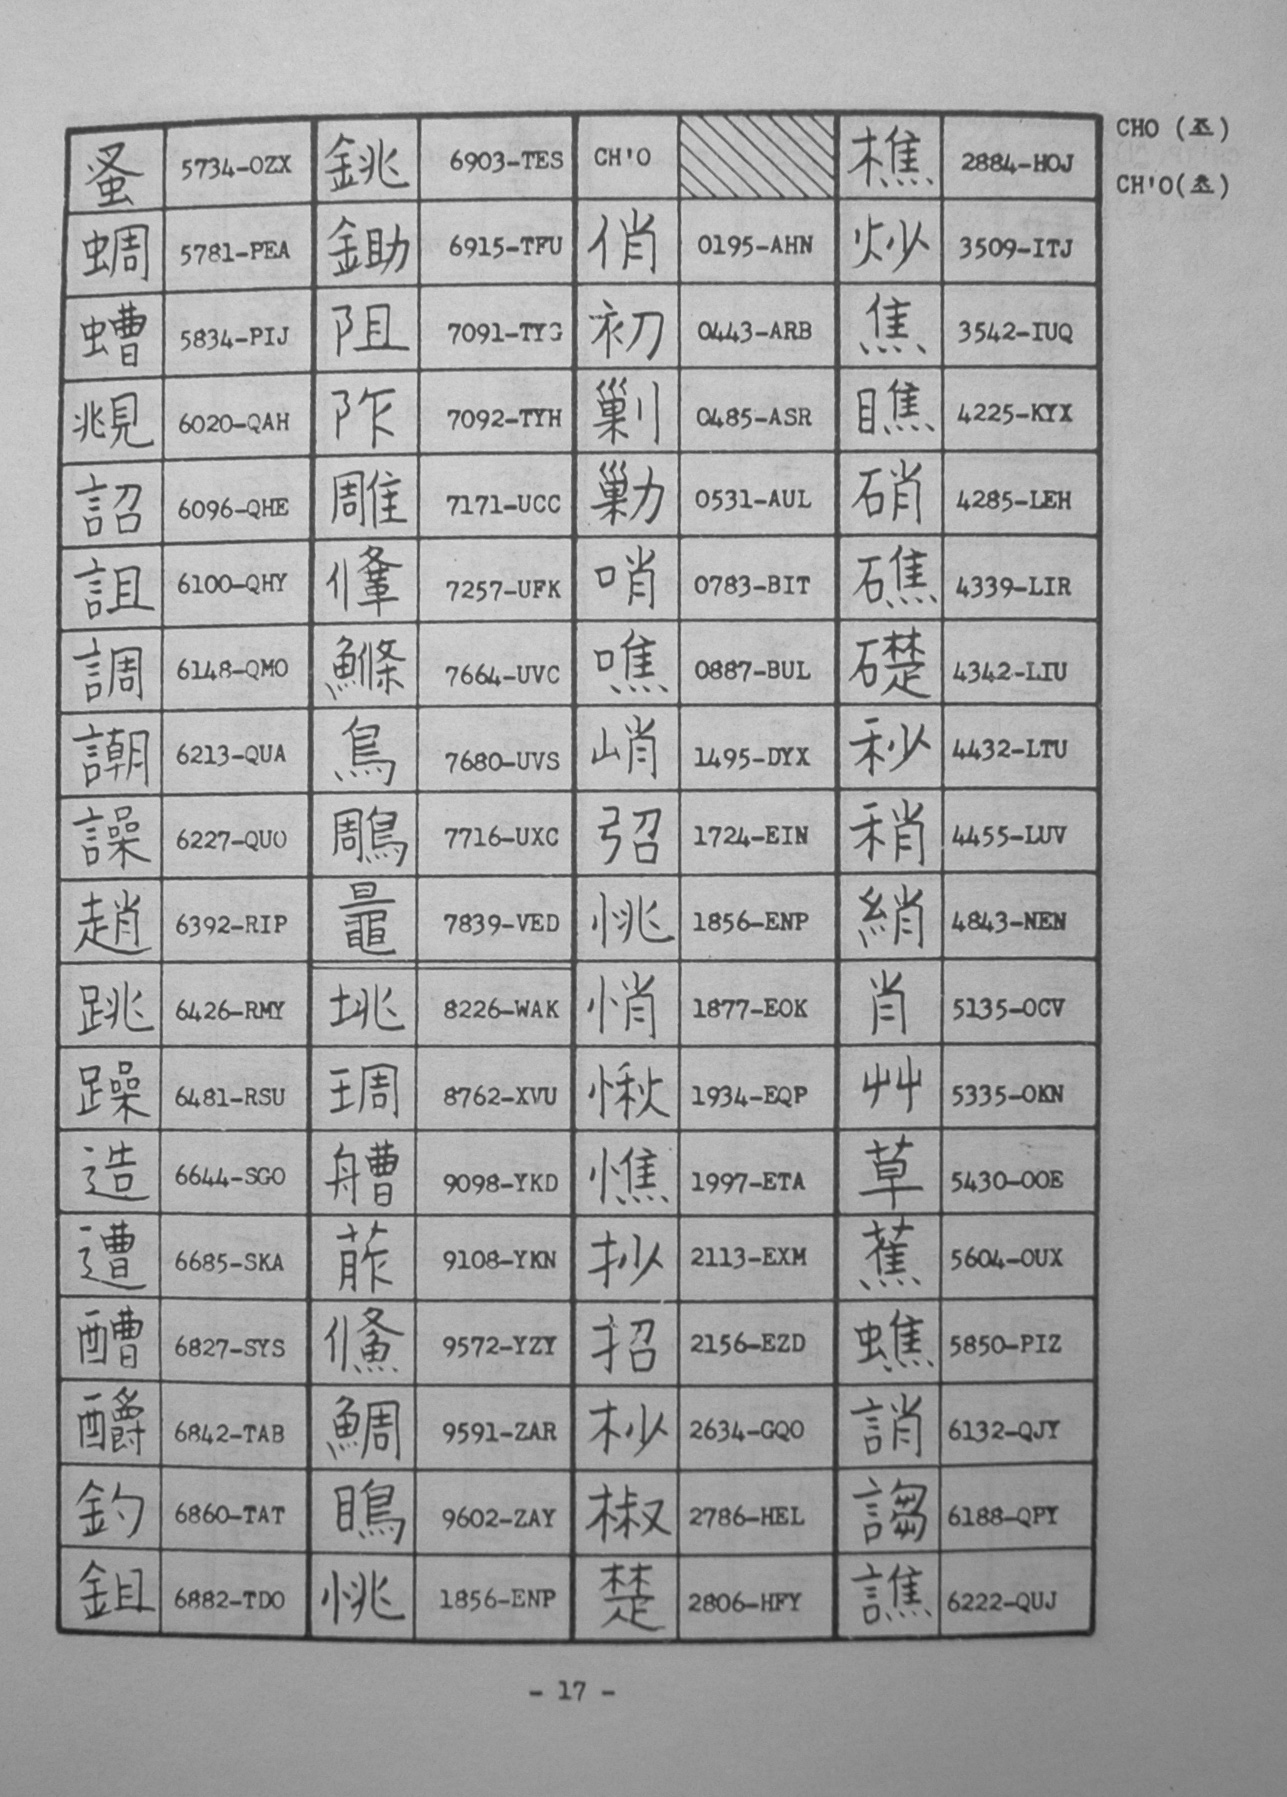 蚤 5734-OZX 銚 6903-TES CH'O 樵 2884-HOJ CHO (조)
CH'O(초)
蜩 5781-PEA 鋤 6915-TFU 俏 0195-AHN 炒 3509-ITJ
螬 5834-PIJ 阻 7091-TYG 初 0443-ARB 焦 3542-IUQ
覜 6020-QAH 阼 7092-TYH 剿 0485-ASR 瞧 4225-KYX
詔 6096-QHE 雕 7171-UCC 勦 0531-AUL 硝 4285-LEH
詛 6100-QHY 鞗 7257-UFK 哨 0783-BIT 礁 4339-LIR
調 6148-QMO 鰷 7664-UVC 噍 0887-BUL 礎 4342-LIU
謿 6213-QUA 鳥 7680-UVS 峭 1495-DYX 秒 4432-LTU
譟 6227-QUO 鵰 7716-UXC 弨 1724-EIN 稍 4455-LUV
趙 6392-RIP 鼂 7839-VED 恌 1856-ENP 綃 4843-NEN
跳 6426-RMY 垗 8226-WAK 悄 1877-EOK 肖 5135-OCV
躁 6481-RSU 琱 8762-XVU 愀 1934-EQP 艸 5335-OKN
造 6644-SGO 艚 9098-YKD 憔 1997-ETA 草 5430-OOE
遭 6685-SKA 葄 9108-YKN 抄 2113-EXM 蕉 5604-OUX
醩 6827-SYS 鯈 9572-YZY 招 2156-EZD 蟭 5850-PIZ
釂 6842-TAB 鯛 9591-ZAR 杪 2634-GQO 誚 6132-QJY
釣 6860-TAT 9602-ZAY 椒 2786-HEL 謅 6188-QPY
鉏 6882-TDO 恌 1856-ENP 楚 2806-HFY 譙 6222-QUJ
- 17 -